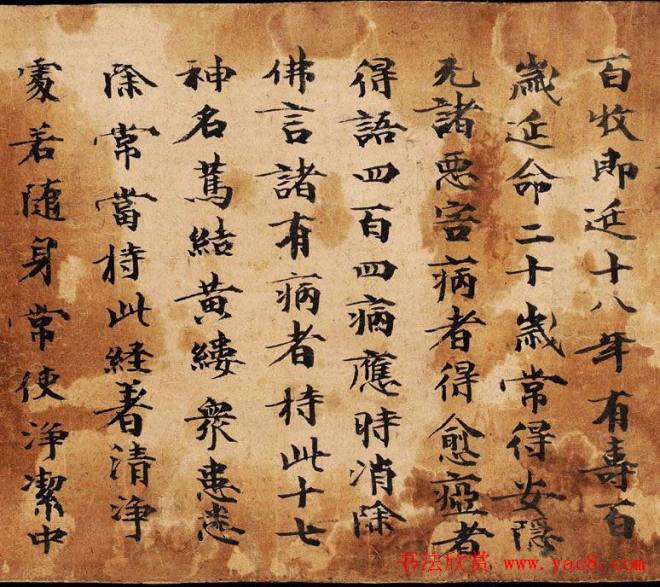 百收即延十八年有壽百
歲延命二十歲常得安隱
无諸惡害病者得愈瘂者
得語四百四病應時消除
佛言諸有病者持此十七
神名為結黃縷眾患悉
除常當持此經著清淨
處若隨身常使淨潔中
书法欣赏 www.yac8.com